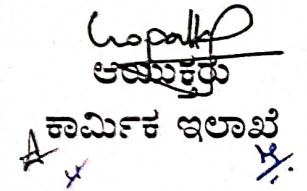 ಆಯುಕ್ತರು
ಕಾರ್ಮಿಕ ಇಲಾಖೆ